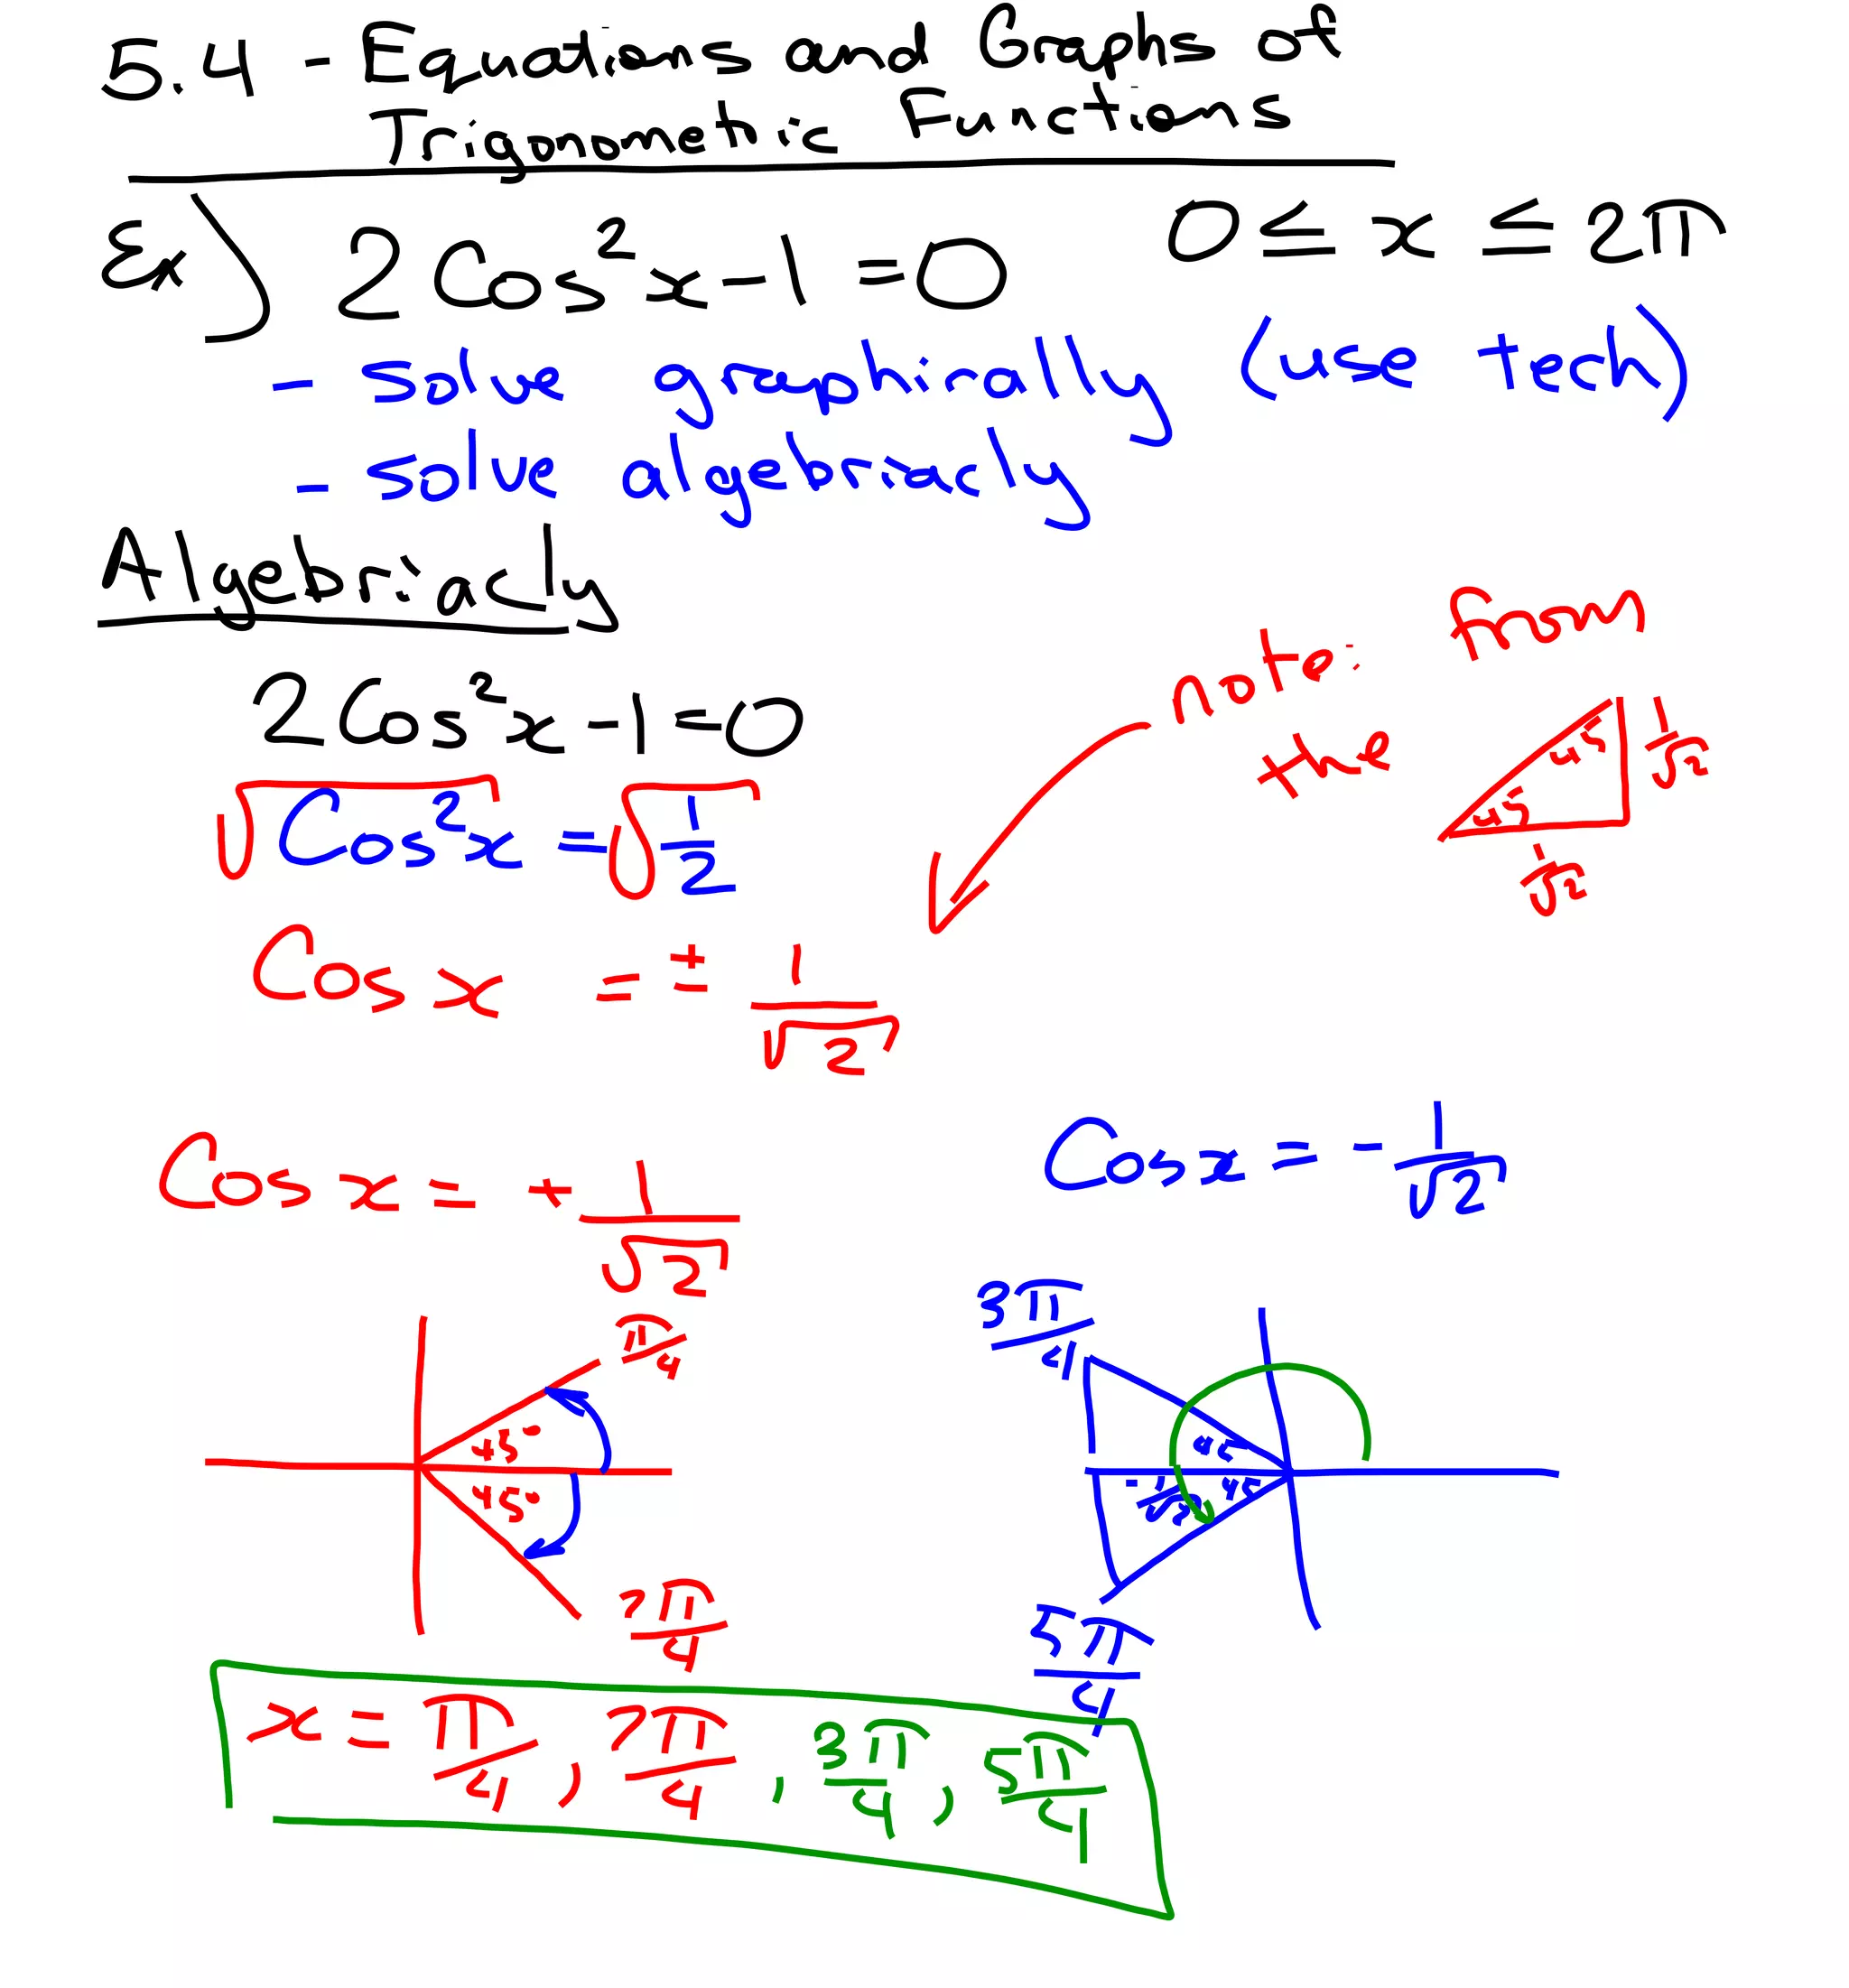 5.4 - Equations and Graphs of
Trigonometric Functions
Ex) 2Cos²x-1=0 0 ≤ x ≤ 2π
- solve graphically (use tech)
- solve algebriacly
Algebriacly
2Cos²x-1=0
√Cos²x = √1/2
note: from
the
45° 45° 1/√2
1/√2
Cos x = ± 1/√2
Cos x = + 1/√2
Cos x = - 1/√2
π/4
45°
45°
7π/4
3π/4
45°
-1/√2 45°
5π/4
x = π/4, 7π/4, 3π/4, 5π/4